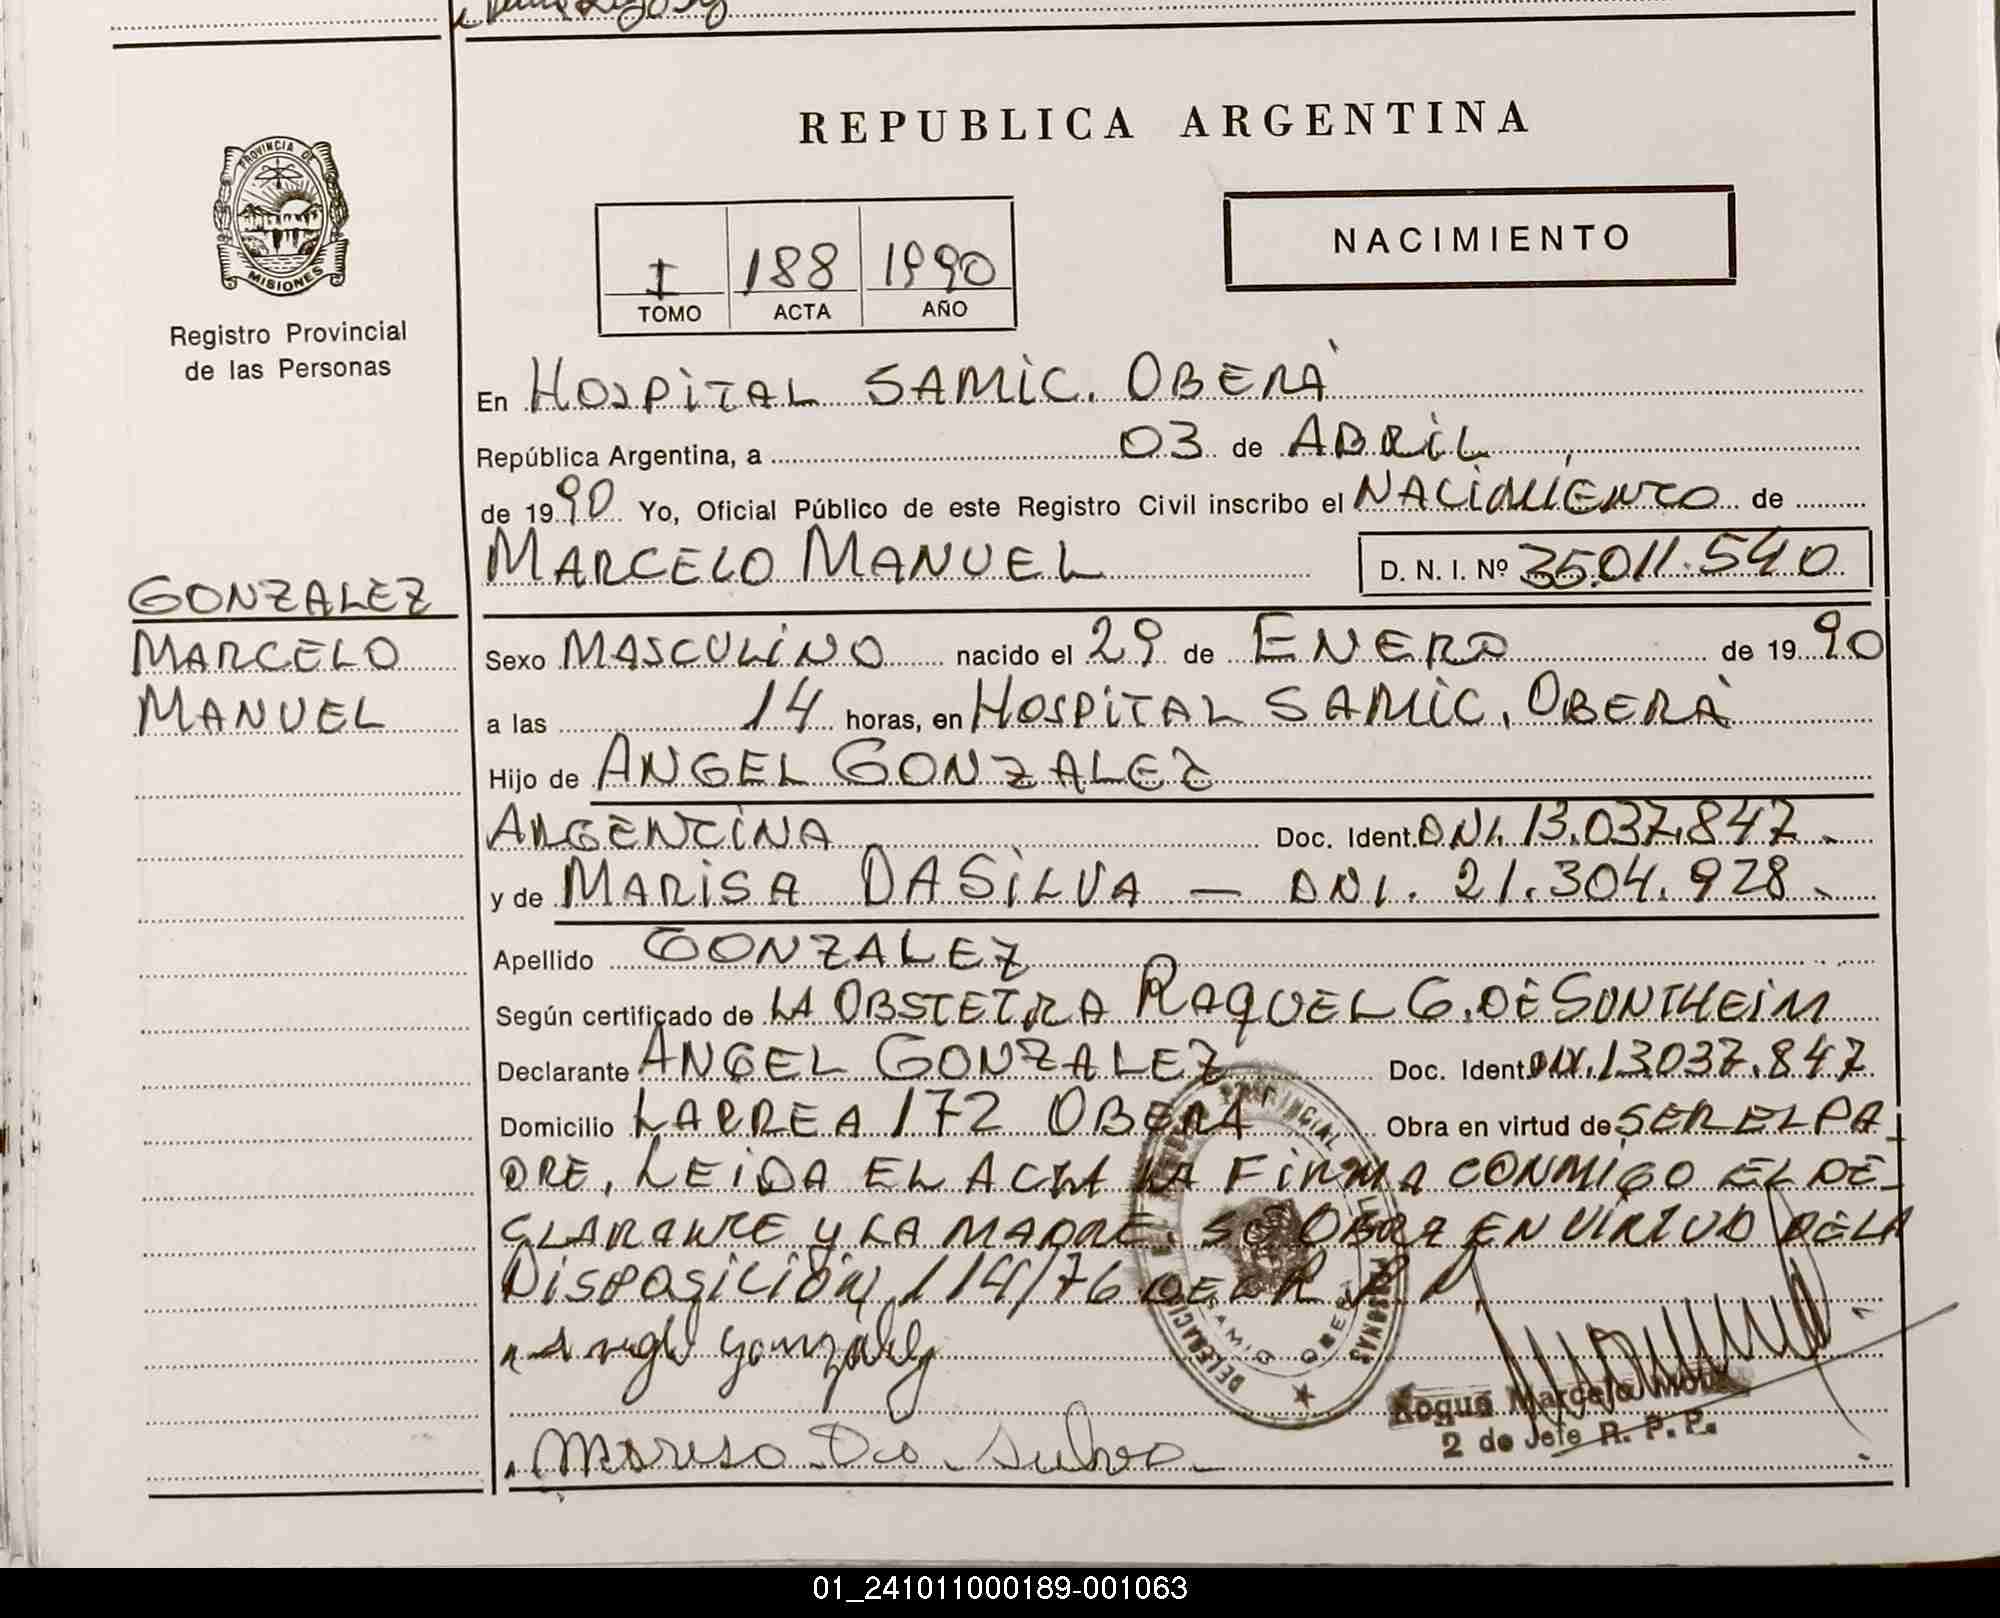 REPUBLICA ARGENTINA
PROVINCIA DE
MISIONES
Registro Provincial
de las Personas
NACIMIENTO
I 188 1990
TOMO ACTA AÑO
En HOSPITAL SAMIC. OBERÁ
República Argentina, a 03 de ABRIL
de 1990 Yo, Oficial Público de este Registro Civil inscribo el NACIMIENTO de
MARCELO MANUEL D. N. I. Nº 35.011.540
GONZALEZ
MARCELO
MANUEL
Sexo MASCULINO nacido el 29 de ENERO de 1990
a las 14 horas, en HOSPITAL SAMIC, OBERÁ
Hijo de ANGEL GONZALEZ
ARGENTINA Doc. Ident. DNI. 13.037.847.-
y de MARISA DASILVA — DNI. 21.304.928.-
Apellido GONZALEZ
Según certificado de LA OBSTETRA RAQUEL G. DE SONTHEIM
Declarante ANGEL GONZALEZ Doc. Ident. DNI. 13.037.847
Domicilio LARREA 172 OBERÁ Obra en virtud de SER EL PA-
DRE, LEIDA EL ACTA LA FIRMA CONMIGO EL DE-
CLARANTE Y LA MADRE. SE OBRA EN VIRTUD DE LA
DISPOSICIÓN 114/76 DEL R. P. P.
Angel Gonzalez
Marisa Da Silva
DELEGACION
SAMIC OBERA
PERSONAS
Roque Marcelo
2 do Jefe R. P. P.
01_241011000189-001063